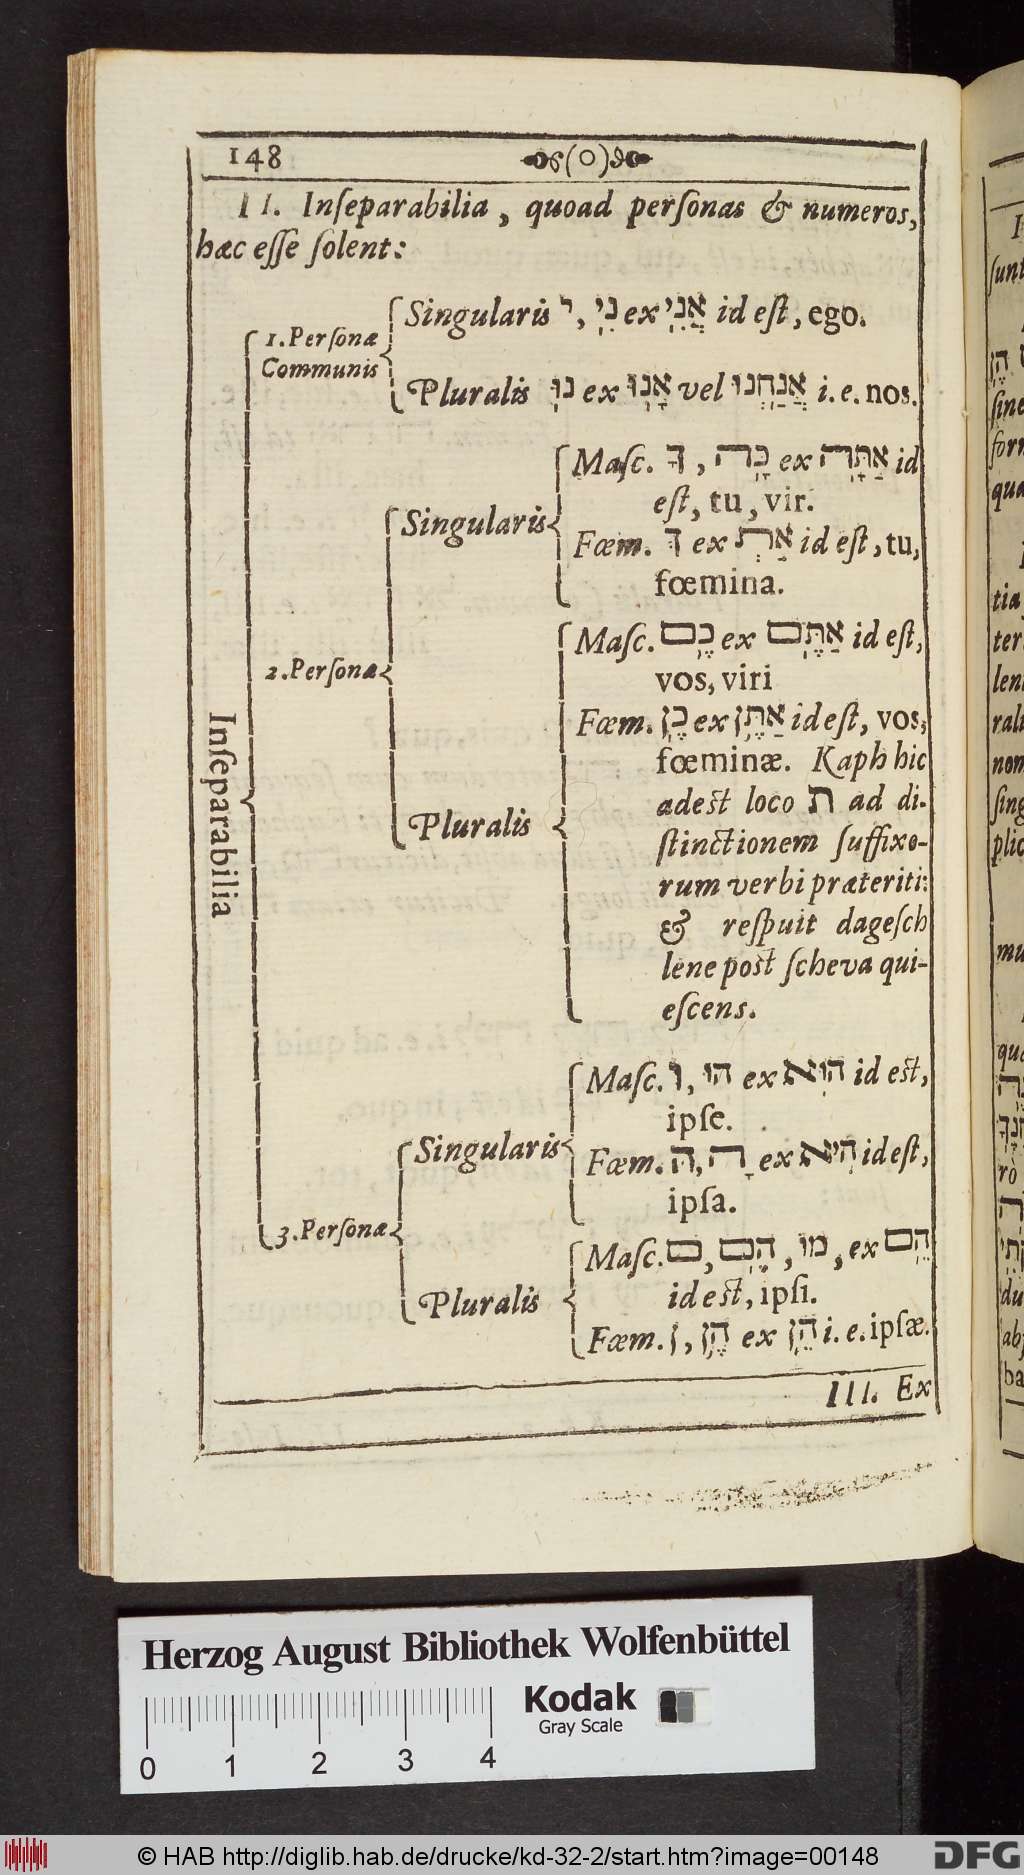 148
II. Inſeparabilia, quoad perſonas & numeros,
hæc eſſe ſolent:
Inſeparabilia
1. Perſonæ
Communis
Singularis י, נִי ex אֲנִי id eſt, ego.
Pluralis נוּ ex אָנוּ vel אֲנַחְנוּ i. e. nos.
2. Perſonæ
Singularis
Maſc. ךָ, כָה ex אַתָּה id
eſt, tu, vir.
Fœm. ךְ ex אַתְּ id eſt, tu,
fœmina.
Pluralis
Maſc. כֶם ex אַתֶּם id eſt,
vos, viri
Fœm. כֶן ex אַתֶּן id eſt, vos,
fœminæ. Kaph hic
adest loco ת ad di-
ſtinctionem ſuffixo-
rum verbi præteriti:
& reſpuit dageſch
lene post ſcheva qui-
eſcens.
3. Perſonæ
Singularis
Maſc. ו, הוּ ex הוּא id est,
ipſe.
Fœm. הּ, ָה ex הִיא id eſt,
ipſa.
Pluralis
Maſc. ם, הֶם, מוֹ, ex הֵם
id est, ipſi.
Fœm. ן, הֶן ex הֵן i. e. ipſæ.
III. Ex
Herzog August Bibliothek Wolfenbüttel
Kodak
Gray Scale
0 1 2 3 4
© HAB http://diglib.hab.de/drucke/kd-32-2/start.htm?image=00148
DFG